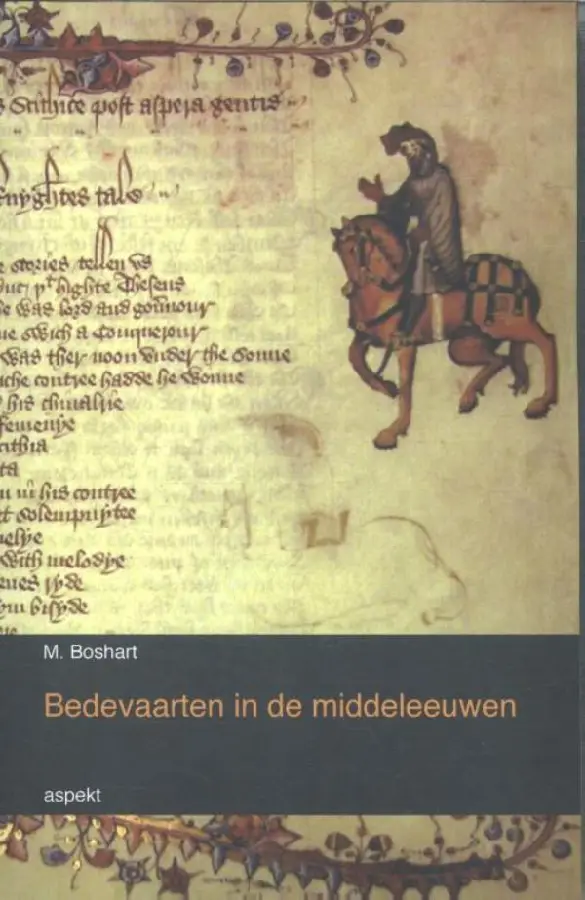 Scithice post aspera gentis
knyghtes tale
stories tellen vs
duc þt highte Theseus
he was lord and gouernour
swich a Conquerour
was ther noon vnder the sonne
riche contree hadde he wonne
his chiualrie
femenye
cithia
ta
in his contree
solempnytee
with melodye
ryde
bisyde
M. Boshart
Bedevaarten in de middeleeuwen
aspekt